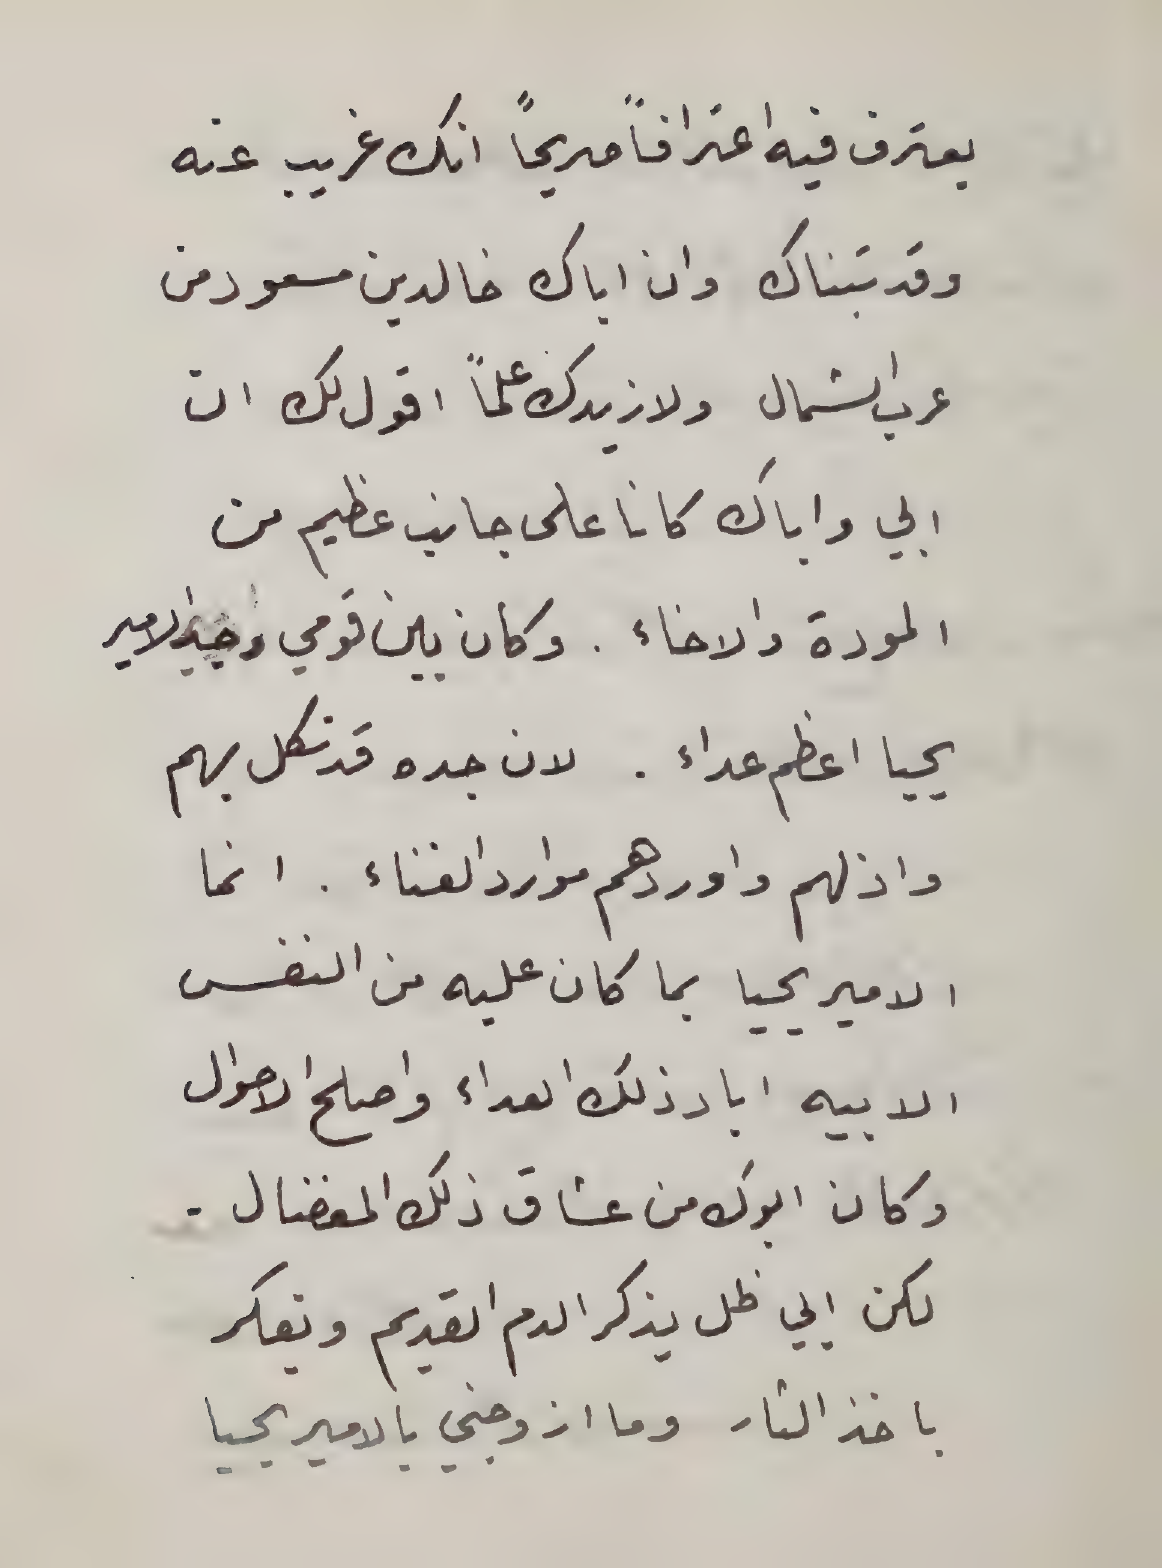 يعترف فيه اعترافاً صريحاً انك غريب عنه
وقد تبناك وان اباك خالد بن مسعود من
عرب الشمال ولازيدك علماً اقول لك ان
ابي واباك كانا على جانب عظيم من
المودة والاخاء . وكان بين قومي وجد الامير
يحيا اعظم عداء . لان جده قد نكل بهم
واذلهم واوردهم موارد الفناء . انما
الامير يحيا بما كان عليه من النفس
الابيه اباد ذلك العداء واصلح الاحوال
وكان ابوك من عشاق ذلك المفضال .
لكن ابي ظل يذكر الدم القديم ويفكر
باخذ الثار وما ازوجني بالامير يحيا